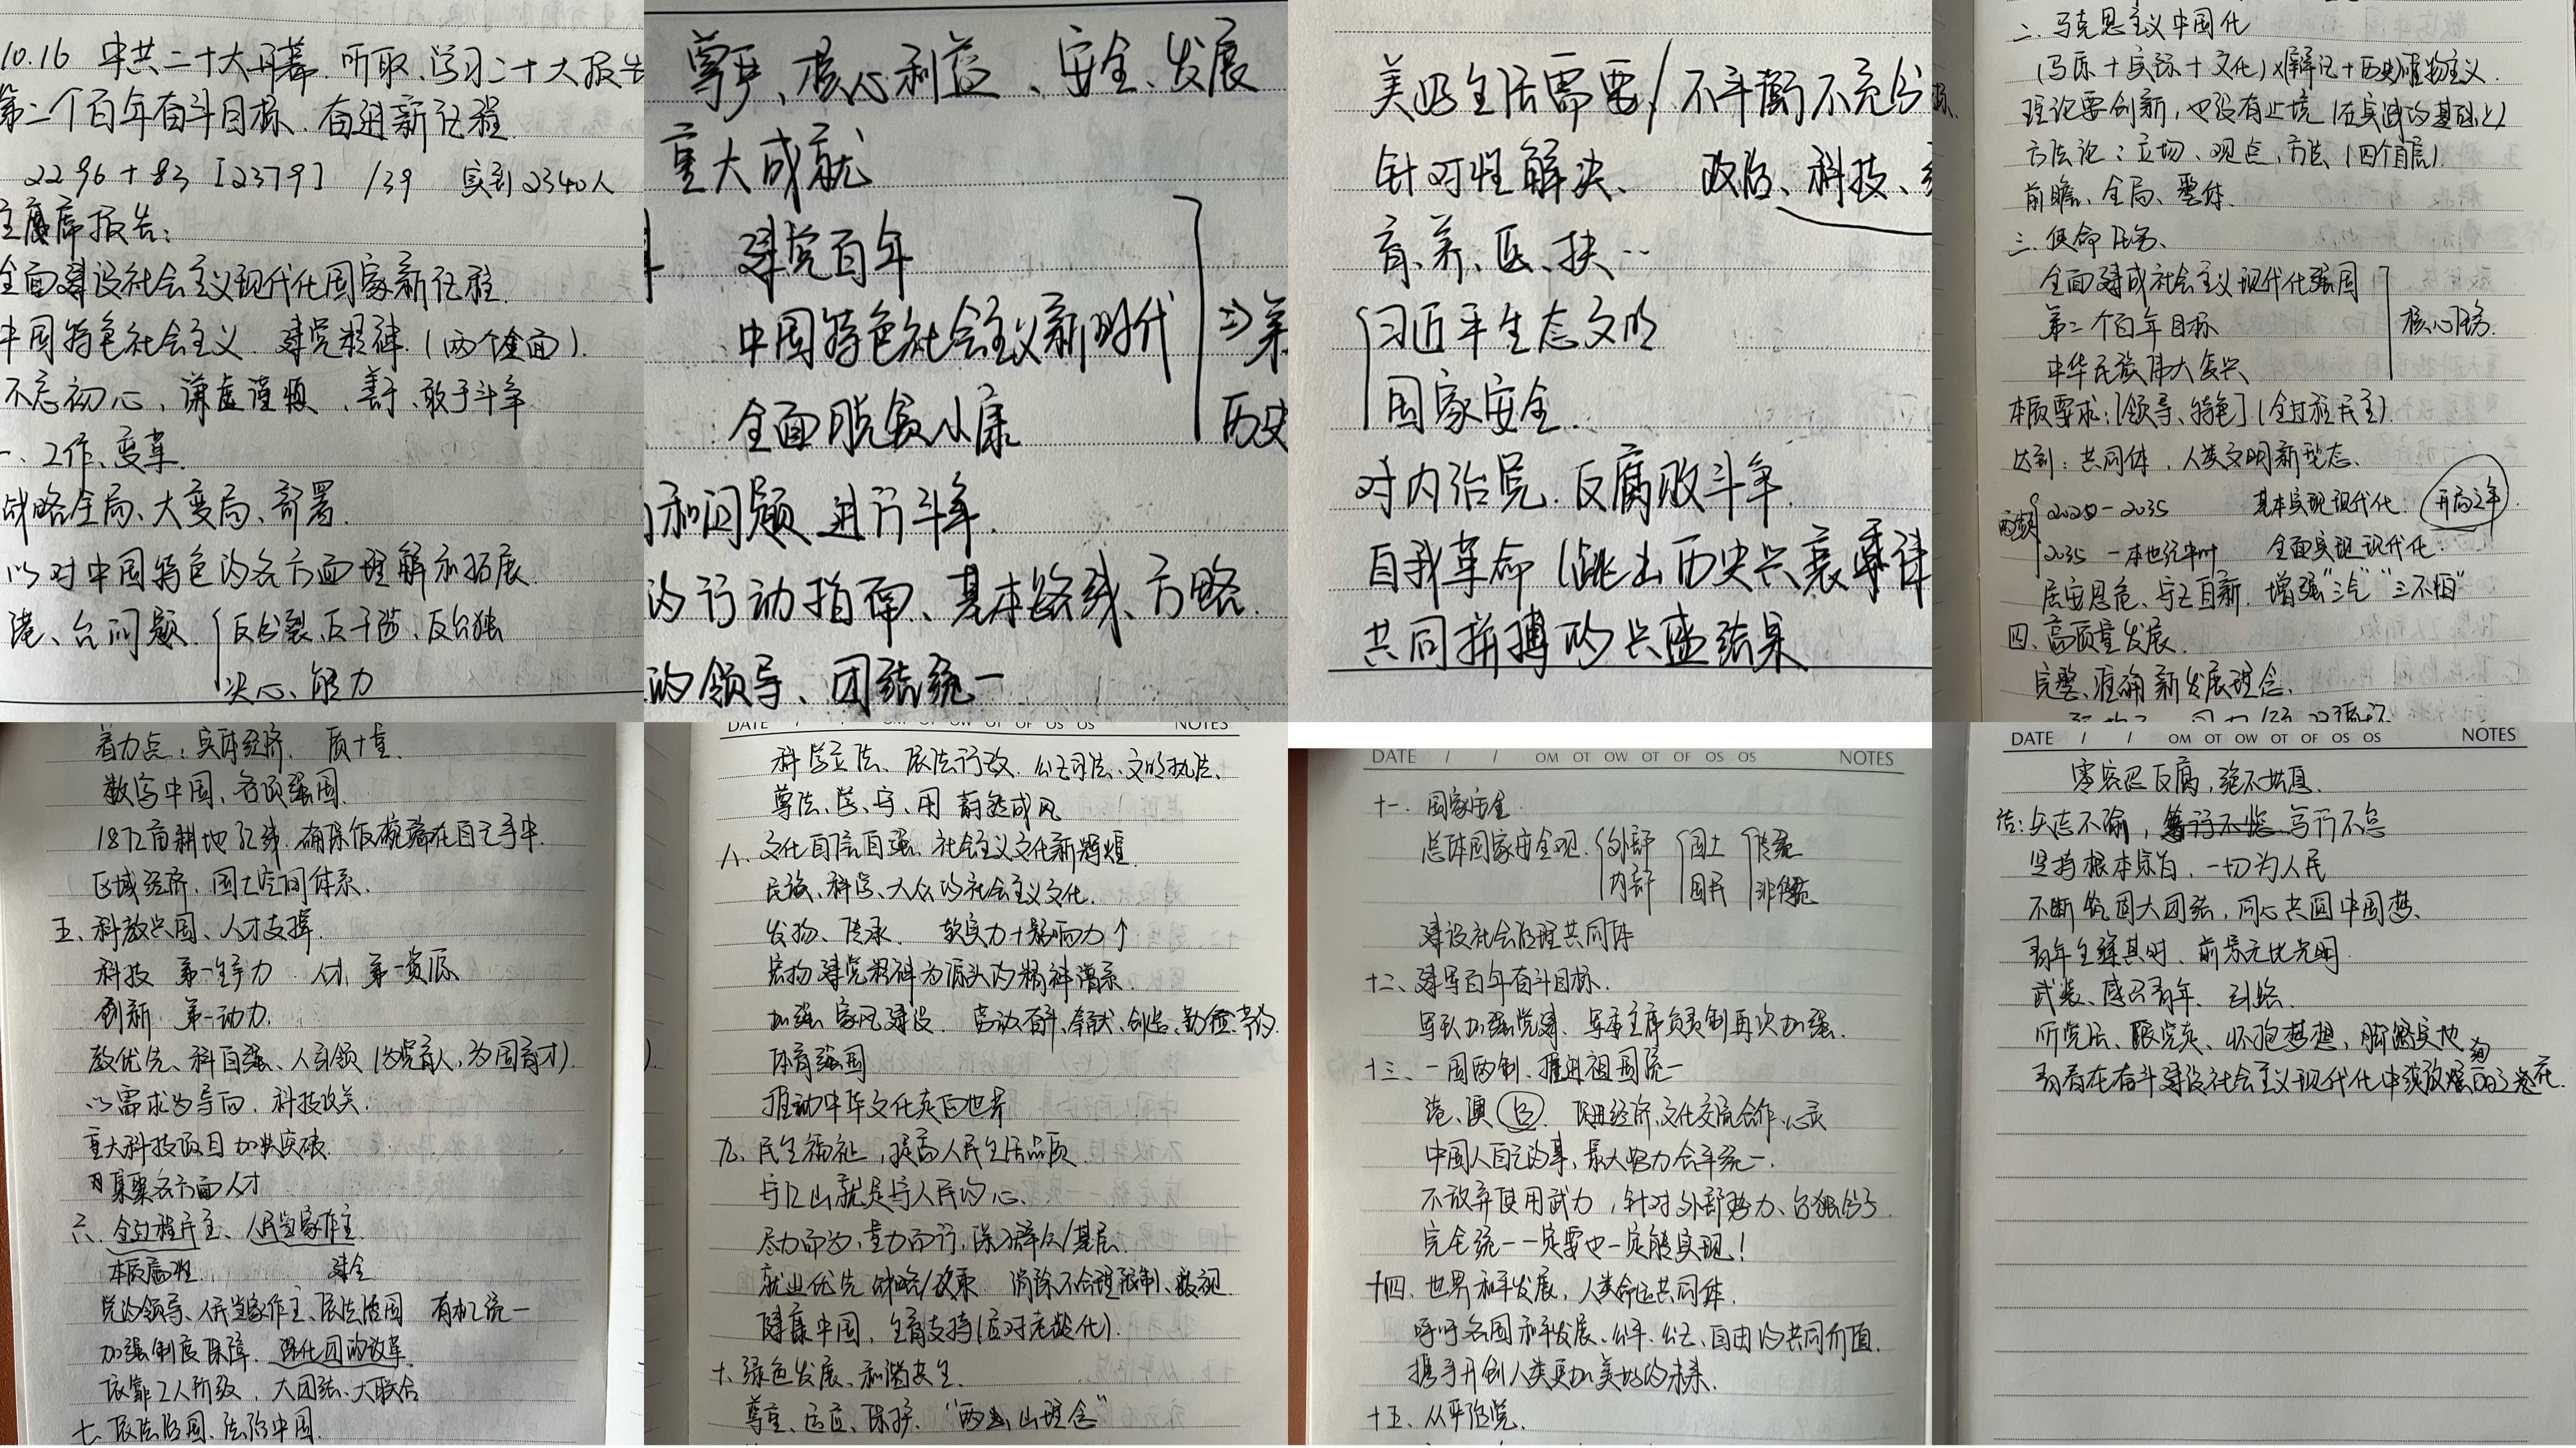 10.16 中共二十大开幕.听取、学习二十大报告
第二个百年奋斗目标.奋进新征程
2296+83 [2379] /39 实到2340人
主席报告:
全面建设社会主义现代化国家新征程.
中国特色社会主义.建党精神.(两个全面).
不忘初心、谦虚谨慎、善于、敢于斗争
一、工作、变革.
战略全局、大变局、部署.
以对中国特色的各方面理解和拓展.
港、台问题.反分裂、反干涉、反台独
决心、能力
尊严、核心利益、安全、发展
重大成就
建党百年
中国特色社会主义新时代 ⇒第
全面脱贫小康 历史
和问题进行斗争.
的行动指南、基本路线、方略.
的领导、团结统一
美好生活需要/不平衡不充分
针对性解决、 政治、科技、
育、养、医、扶…
习近平生态文明
国家安全.
对内治党.反腐败斗争.
自我革命(跳出历史兴衰率律
共同拼搏的兴盛结果
二、马克思主义中国化
(马原+实际+文化)×(辩证+历史)唯物主义.
理论要创新,也没有止境(在实践的基础上)
方法论:立场、观点、方法(四个自信).
前瞻、全局、整体.
三.使命任务、
全面建成社会主义现代化强国
第二个百年目标 核心任务.
中华民族伟大复兴
本质要求:[领导、特色](全过程民主).
达到:共同体,人类文明新型态、
2020-2035 基本实现现代化. 开局之年
2035-本世纪中叶 全面实现现代化.
居安思危、守正自新.增强"三气""三不怕"
四.高质量发展.
完整、准确新发展理念.
着力点:实体经济. 质+量.
数字中国、各项强国.
18亿亩耕地红线.确保饭碗端在自己手中.
区域经济.国土空间体系.
五、科教兴国、人才支撑.
科技 第一生产力 人才 第一资源
创新 第一动力.
教优先、科自强、人引领(为党育人,为国育才)
以需求为导向.科技攻关.
重大科技项目加快突破.
集聚各方面人才
六、全过程民主、人民当家作主.
本质属性 健全
党的领导、人民当家作主、依法治国 有机统一
加强制度保障.深化团的改革.
依靠工人阶级,大团结、大联合
七、依法治国、法治中国.
DATE / / OM OT OW OT OF OS OS NOTES
科学立法、依法行政.公正司法、文明执法、
尊法、学、守、用 蔚然成风
八、文化自信自强.社会主义文化新辉煌.
民族、科学、大众的社会主义文化.
发扬、传承. 软实力+影响力↑
宏扬建党精神为源头的精神谱系.
加强家风建设. 劳动、奋斗、奉献、创造、勤俭节约.
体育强国
推动中华文化走向世界
九.民生福祉,提高人民生活品质.
守江山就是守人民的心.
尽力而为,量力而行,深入群众/基层.
就业优先战略/政策 消除不合理限制、歧视.
健康中国,生育支持(应对老龄化).
十.绿色发展、和谐共生.
尊重、适应、保护.“两山理念”
DATE / / OM OT OW OT OF OS OS NOTES
十一.国家安全.
总体国家安全观.外部 国土 传统
内部 国民 非传统
建设社会治理共同体
十二、建军百年奋斗目标.
军队加强党建、军委主席负责制再次加强.
十三、一国两制、推进祖国统一
港、澳 台. 经济、文化交流合作、心灵
中国人自己的事,最大努力和平统一.
不放弃使用武力,针对外部势力、台独分子.
完全统一一定要也一定能实现!
十四.世界和平发展,人类命运共同体.
呼吁各国和平发展、公平、公正、自由的共同价值.
携手开创人类更加美好的未来.
十五、从严治党.
DATE / / OM OT OW OT OF OS OS NOTES
零容忍反腐,绝不姑息.
结:矢志不渝,笃行不怠
坚持根本宗旨,一切为人民
不断巩固大团结,同心共圆中国梦、
青年生逢其时、前景无比光明.
武装、感召青年、引路.
听党话、跟党走、怀抱梦想,脚踏实地
青春在奋斗建设社会主义现代化中绽放绚丽的花